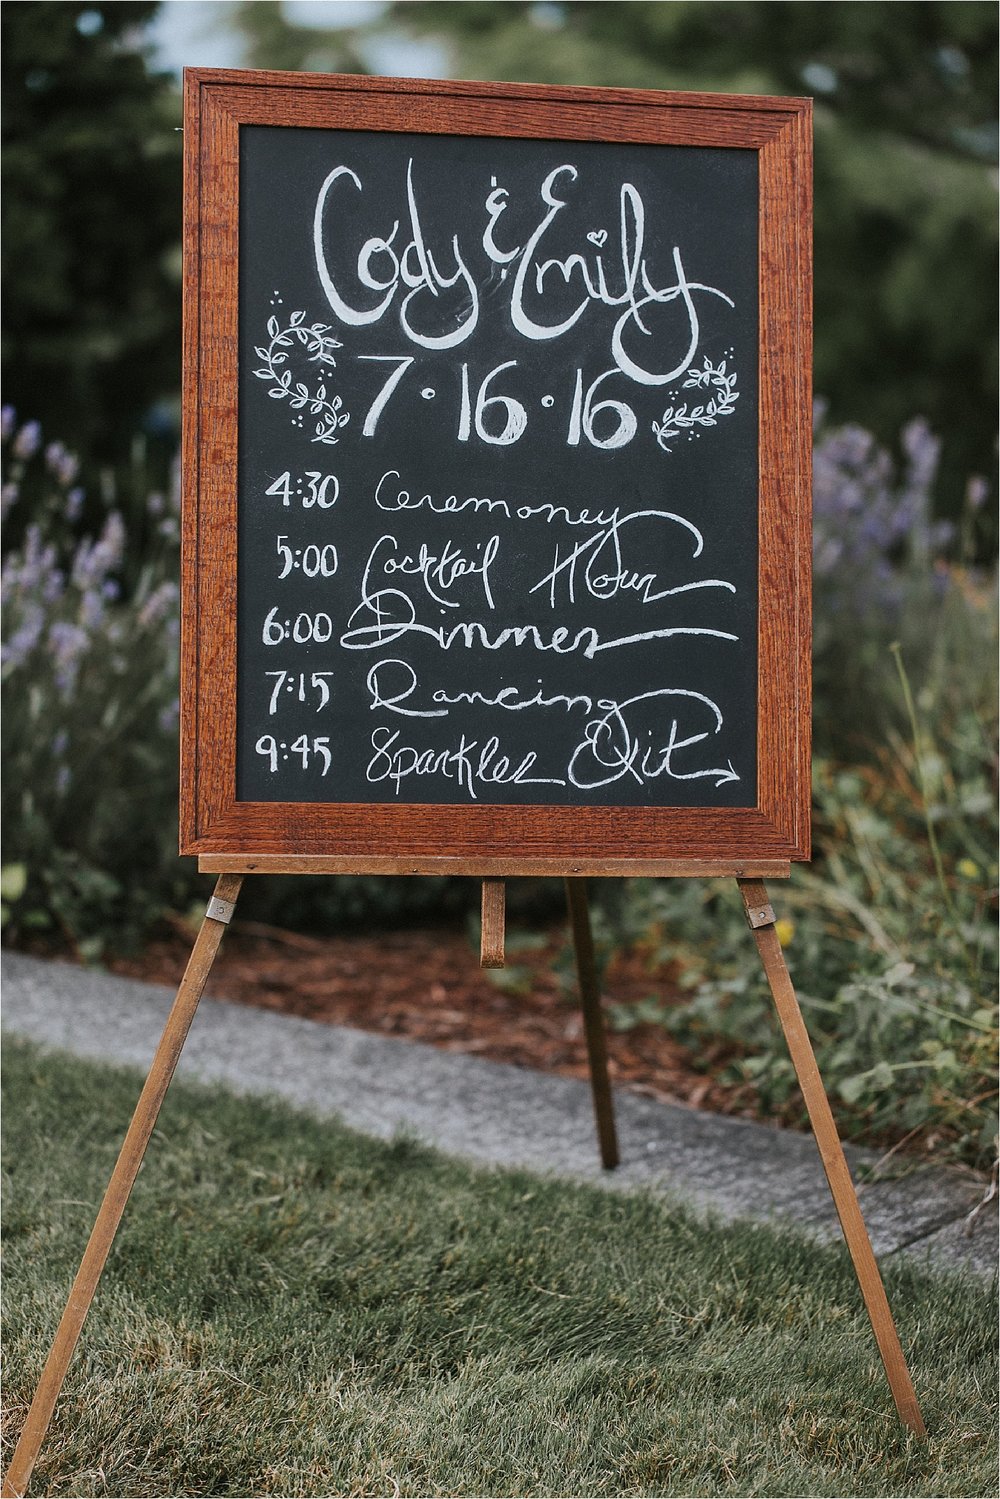 Cody & Emily
7·16·16
4:30 Ceremoney
5:00 Cocktail Hour
6:00 Dinner
7:15 Dancing
9:45 Sparkler Exit